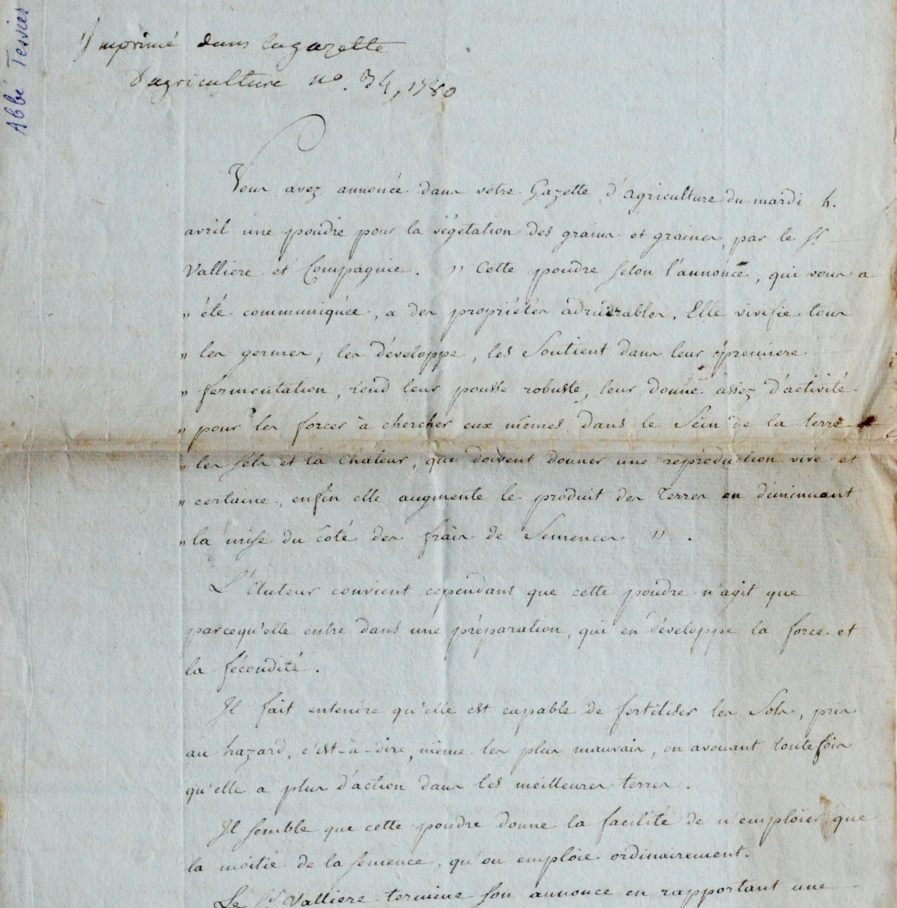 Abbé Tessier
Imprimé dans la gazette
d'agriculture no. 34, 1780
Vous avez annoncée dans votre Gazette d'agriculture du mardi 4.
avril une poudre pour la végétation des grains et graines par le Sr
Valliere et Compagnie. " Cette poudre selon l'annonce, qui vous a
" été communiquée, a des propriétés admirables. Elle vivifie tous
" les germes, les développe, les Soutient dans leur premiere
" fermentation, rend leur pousse robuste, leur donne assez d'activité
" pour les forcer à chercher eux mêmes dans le Sein de la terre
" les sels et la chaleur, qui doivent donner une reproduction vive et
" certaine, enfin elle augmente le produit des Terres en diminuant
" la mise du côté des frais de Semences ".
L'Auteur convient cependant que cette poudre n'agit que
parcequ'elle entre dans une préparation, qui en développe la force et
la fécondité.
Il fait entendre qu'elle est capable de fertiliser les Sols, pris
au hazard, c'est-à-dire, même les plus mauvais, en avouant toutefois
qu'elle a plus d'action dans les meilleures terres.
Il semble que cette poudre donne la facilité de n'emploier que
la moitié de la semence, qu'on emploie ordinairement.
Le Sr Valliere termine son annonce en rapportant une